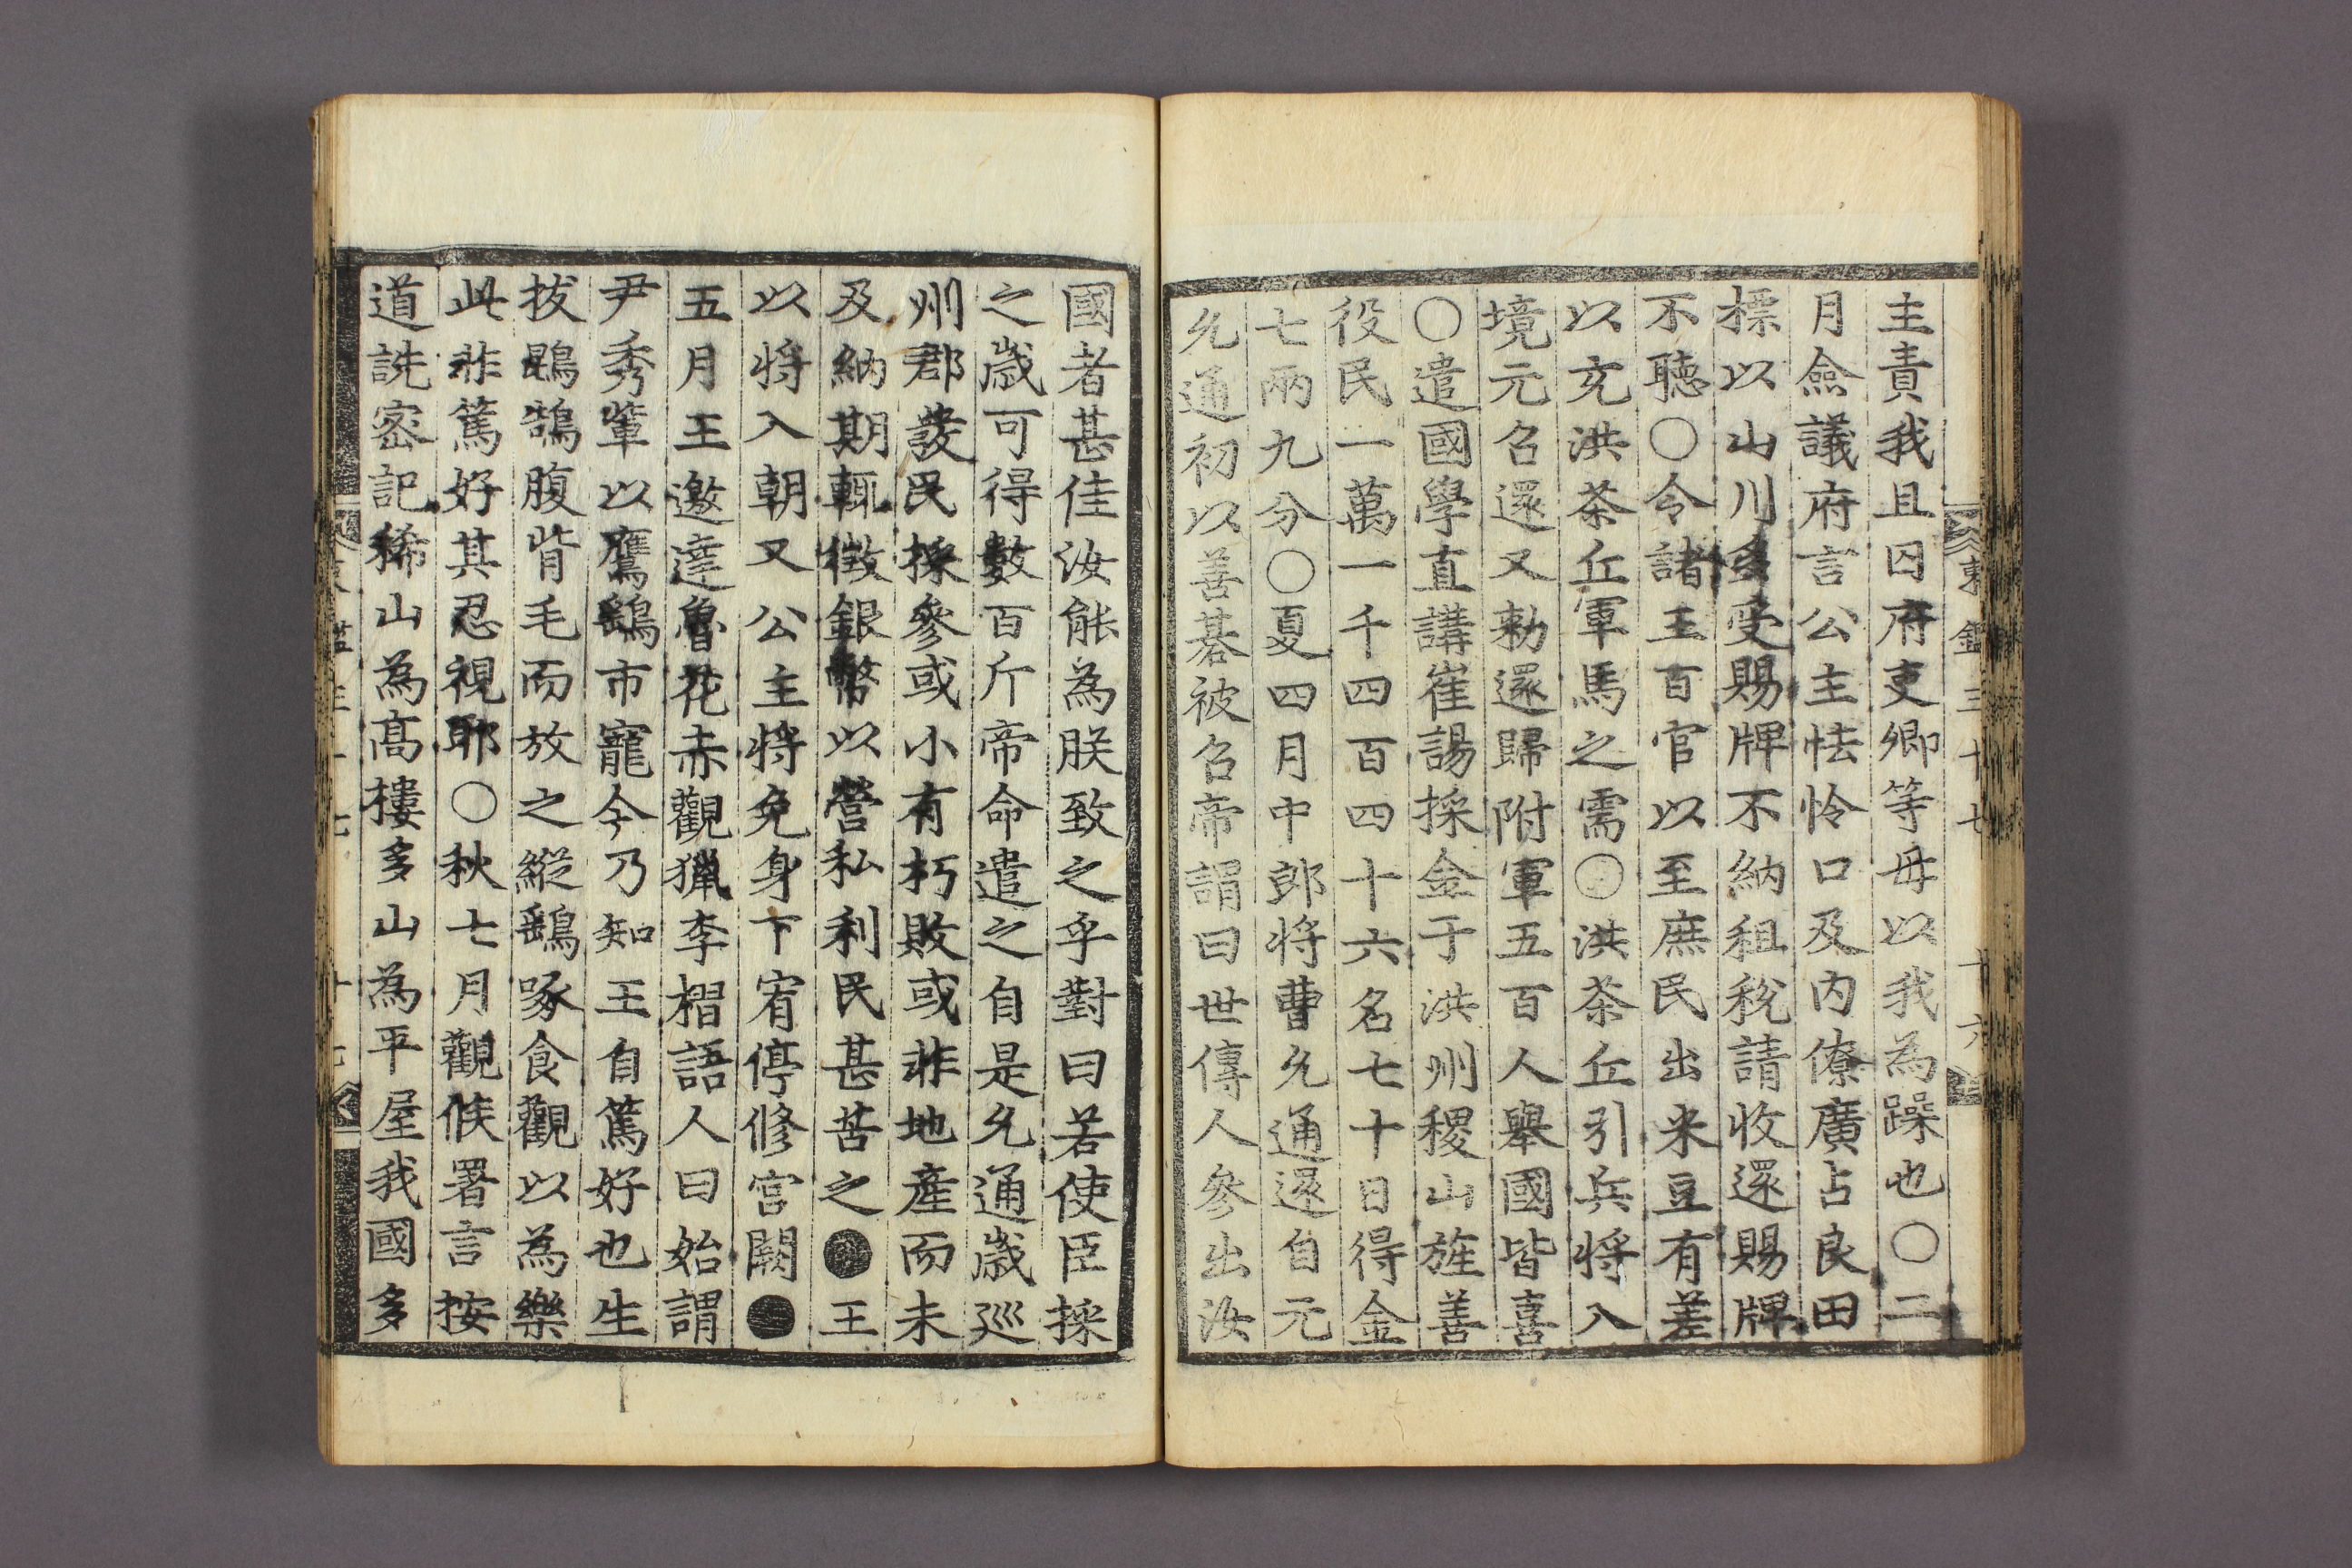 主責我且囚府吏卿等毋以我為躁也○二
月僉議府言公主怯怜口及內僚廣占良田
標以山川多受賜牌不納租稅請收還賜牌
不聽○令諸王百官以至庶民出米豆有差
以充洪茶丘軍馬之需○洪茶丘引兵將入
境元召還又勑還歸附軍五百人舉國皆喜
○遣國學直講崔諹採金于洪州稷山旌善
役民一萬一千四百四十六名七十日得金
七兩九分○夏四月中郎將曹允通還自元
允通初以善碁被召帝謂曰世傳人參出汝
東鑑三十七 十六
國者甚佳汝能為朕致之乎對曰若使臣採
之歲可得數百斤帝命遣之自是允通歲巡
州郡發民採參或小有朽敗或非地產而未
及納期輒徵銀幣以營私利民甚苦之●王
以將入朝又公主將免身下宥停修宮闕●
五月王邀達魯花赤觀獵李槢語人曰始謂
尹秀輩以鷹鷂市寵今乃知王自篤好也生
拔鵾鵠腹背毛而放之縱鷂啄食觀以為樂
此非篤好其忍視耶○秋七月觀候署言按
道詵密記稀山為高樓多山為平屋我國多